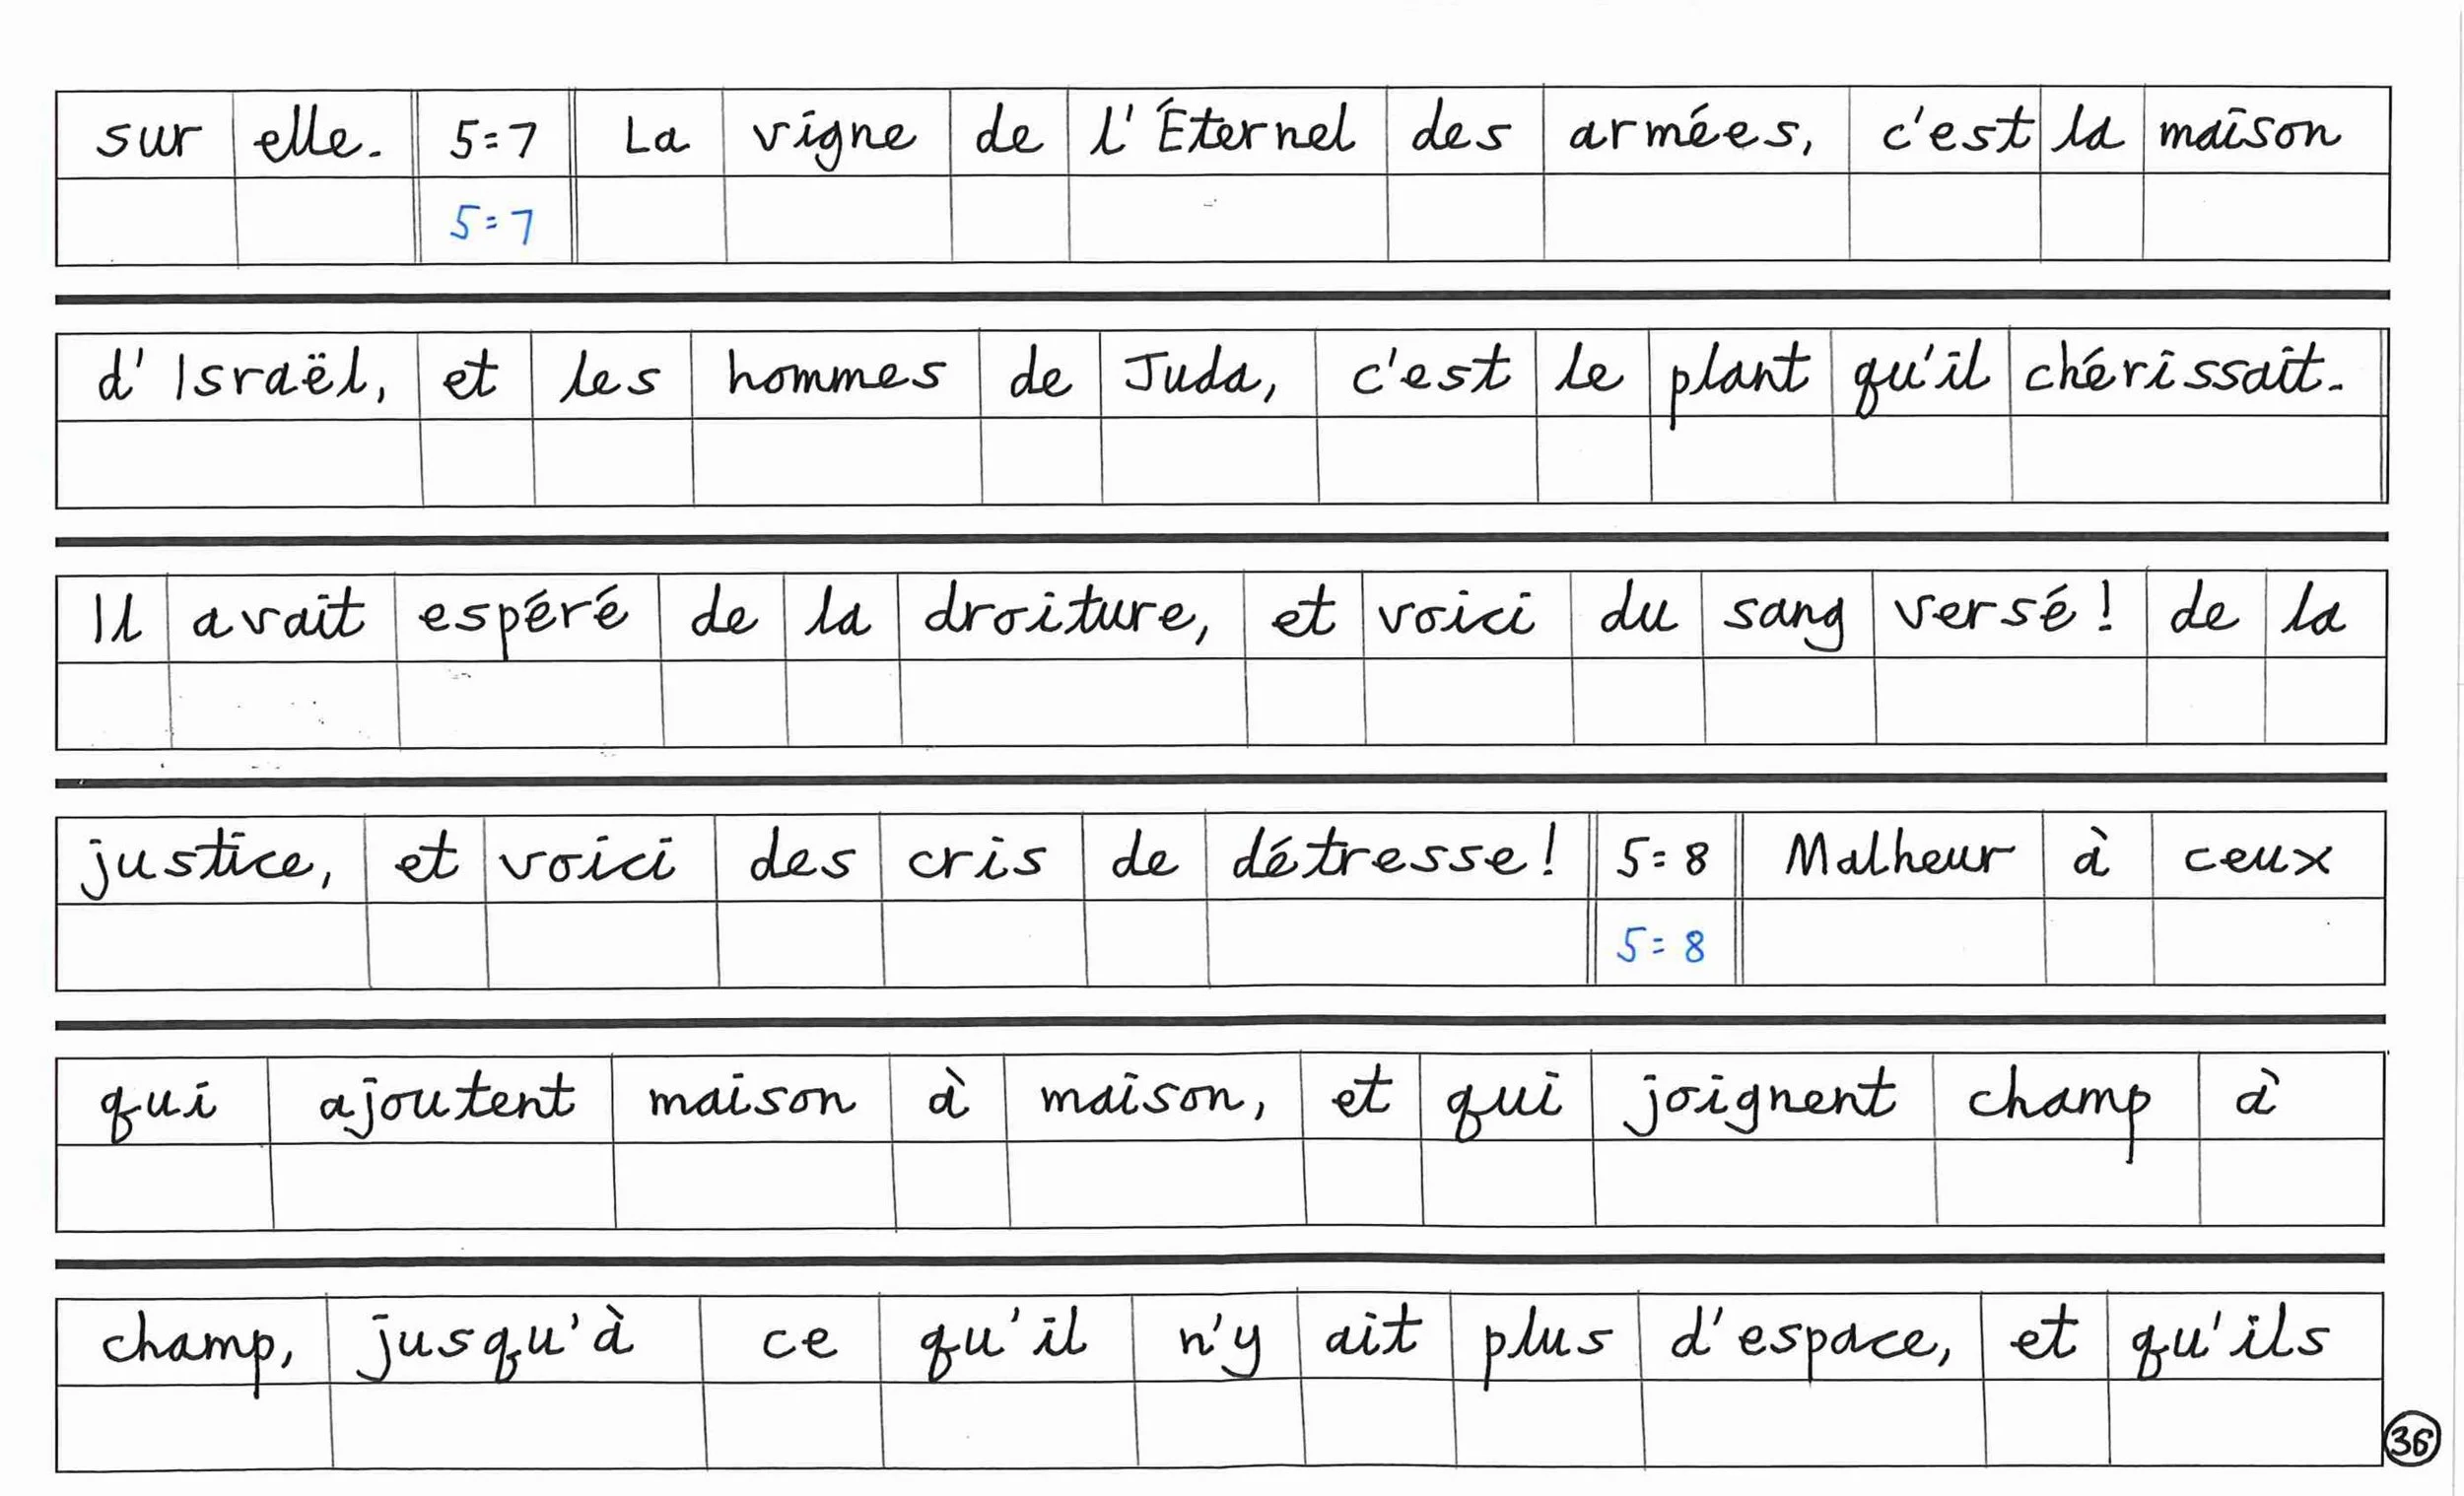 sur elle. 5=7 La vigne de l'Éternel des armées, c'est la maison
5=7
d'Israël, et les hommes de Juda, c'est le plant qu'il chérissait.
Il avait espéré de la droiture, et voici du sang versé! de la
justice, et voici des cris de détresse! 5=8 Malheur à ceux
5=8
qui ajoutent maison à maison, et qui joignent champ à
champ, jusqu'à ce qu'il n'y ait plus d'espace, et qu'ils
36